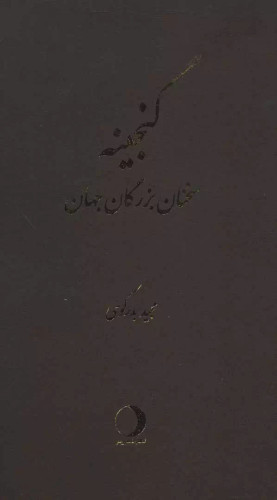 گنجینه
سخنان بزرگان جهان
مجید